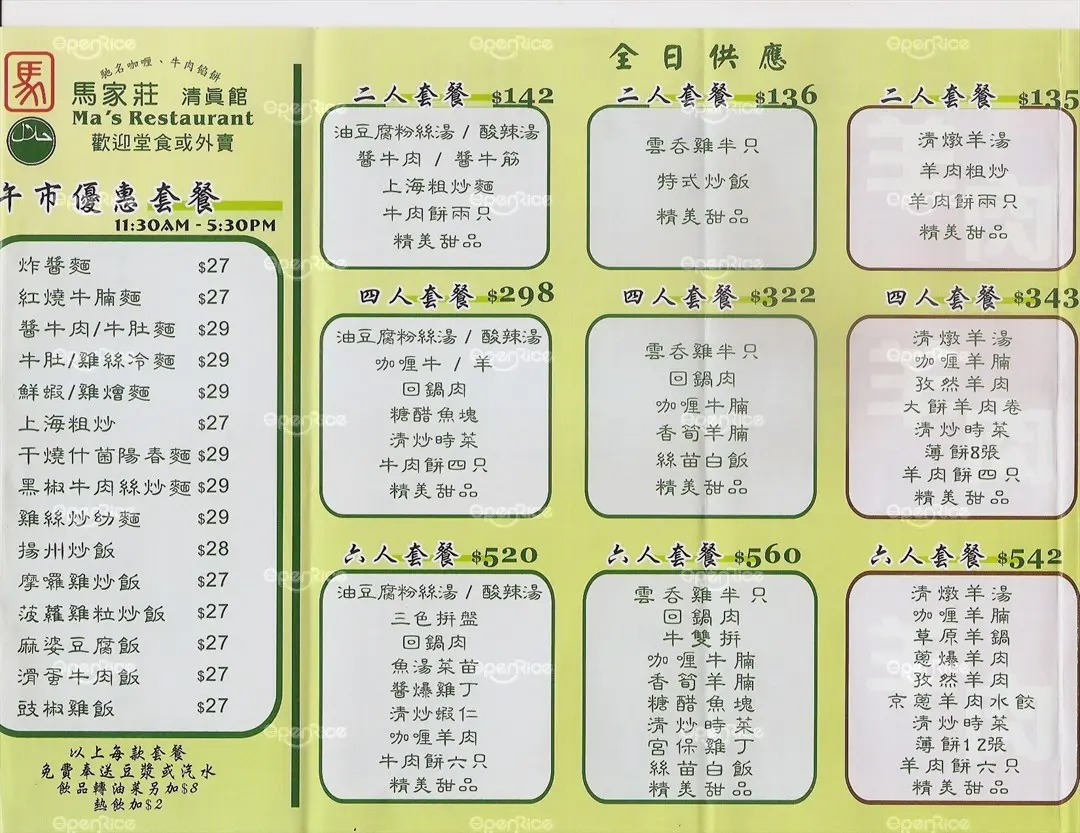 馳名咖喱、牛肉餡餅
馬
馬家莊 清真館
Ma's Restaurant
حلال
歡迎堂食或外賣
午市優惠套餐
11:30AM - 5:30PM
炸醬麵 $27
紅燒牛腩麵 $27
醬牛肉/牛肚麵 $29
牛肚/雞絲冷麵 $29
鮮蝦/雞燴麵 $29
上海粗炒 $27
干燒什菌陽春麵 $29
黑椒牛肉絲炒麵 $29
雞絲炒幼麵 $29
揚州炒飯 $28
摩囉雞炒飯 $27
菠蘿雞粒炒飯 $27
麻婆豆腐飯 $27
滑蛋牛肉飯 $27
豉椒雞飯 $27
以上每款套餐
免費奉送豆漿或汽水
飲品轉油菜另加$8
熱飲加$2
全日供應
二人套餐 $142
油豆腐粉絲湯 / 酸辣湯
醬牛肉 / 醬牛筋
上海粗炒麵
牛肉餅兩只
精美甜品
二人套餐 $136
雲吞雞半只
特式炒飯
精美甜品
二人套餐 $135
清燉羊湯
羊肉粗炒
羊肉餅兩只
精美甜品
四人套餐 $298
油豆腐粉絲湯 / 酸辣湯
咖喱牛 / 羊
回鍋肉
糖醋魚塊
清炒時菜
牛肉餅四只
精美甜品
四人套餐 $322
雲吞雞半只
回鍋肉
咖喱牛腩
香筍羊腩
絲苗白飯
精美甜品
四人套餐 $343
清燉羊湯
咖喱羊腩
孜然羊肉
大餅羊肉卷
清炒時菜
薄餅8張
羊肉餅四只
精美甜品
六人套餐 $520
油豆腐粉絲湯 / 酸辣湯
三色拼盤
回鍋肉
魚湯菜苗
醬爆雞丁
清炒蝦仁
咖喱羊肉
牛肉餅六只
精美甜品
六人套餐 $560
雲吞雞半只
回鍋肉
牛雙拼
咖喱牛腩
香筍羊腩
糖醋魚塊
清炒時菜
宮保雞丁
絲苗白飯
精美甜品
六人套餐 $542
清燉羊湯
咖喱羊腩
草原羊鍋
蔥爆羊肉
孜然羊肉
京蔥羊肉水餃
清炒時菜
薄餅12張
羊肉餅六只
精美甜品
OpenRice